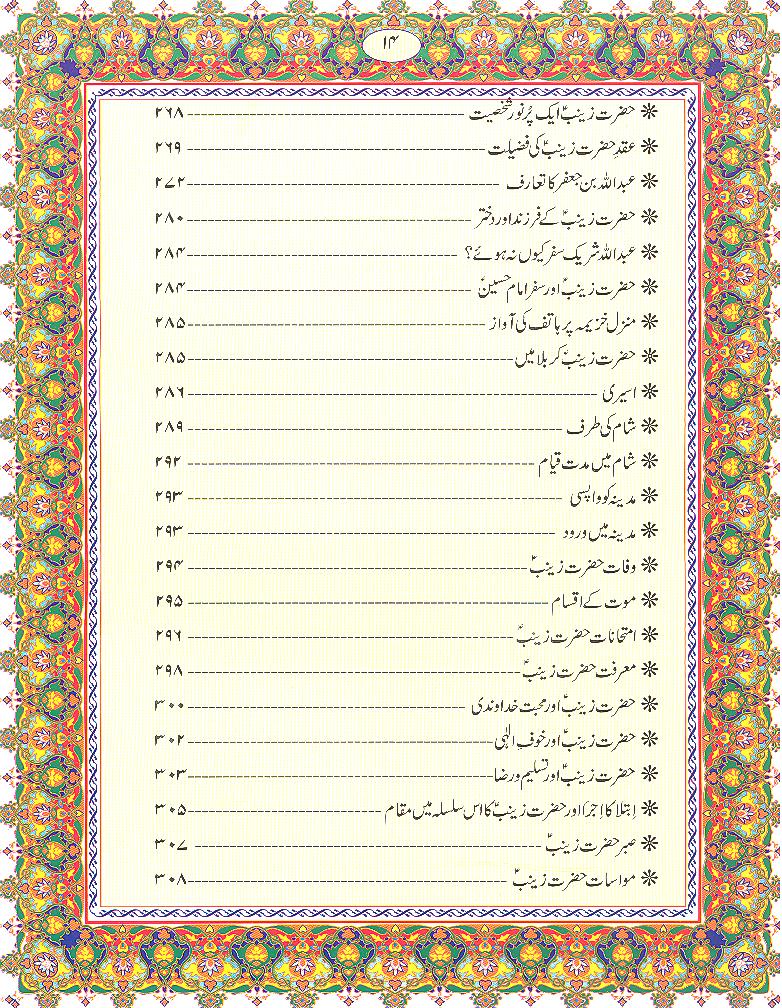 ۱۴
❋ حضرت زینبؑ ایک پُرنور شخصیت ---------- ۲۶۸
❋ عقدِ حضرت زینبؑ کی فضیلت ---------- ۲۶۹
❋ عبداللہ بن جعفر کا تعارف ---------- ۲۷۲
❋ حضرت زینبؑ کے فرزند اور دختر ---------- ۲۸۰
❋ عبداللہ شریک سفر کیوں نہ ہوئے؟ ---------- ۲۸۴
❋ حضرت زینبؑ اور سفر امام حسینؑ ---------- ۲۸۴
❋ منزل خزیمہ پر ہاتف کی آواز ---------- ۲۸۵
❋ حضرت زینبؑ کربلا میں ---------- ۲۸۵
❋ اسیری ---------- ۲۸۶
❋ شام کی طرف ---------- ۲۸۹
❋ شام میں مدت قیام ---------- ۲۹۲
❋ مدینہ کو واپسی ---------- ۲۹۳
❋ مدینہ میں ورود ---------- ۲۹۳
❋ وفات حضرت زینبؑ ---------- ۲۹۴
❋ موت کے اقسام ---------- ۲۹۵
❋ امتحانات حضرت زینبؑ ---------- ۲۹۶
❋ معرفت حضرت زینبؑ ---------- ۲۹۸
❋ حضرت زینبؑ اور محبت خداوندی ---------- ۳۰۰
❋ حضرت زینبؑ اور خوف الٰہی ---------- ۳۰۲
❋ حضرت زینبؑ اور تسلیم و رضا ---------- ۳۰۳
❋ اِبتلا کا اِجرا اور حضرت زینبؑ کا اس سلسلہ میں مقام ---------- ۳۰۵
❋ صبر حضرت زینبؑ ---------- ۳۰۷
❋ مواسات حضرت زینبؑ ---------- ۳۰۸